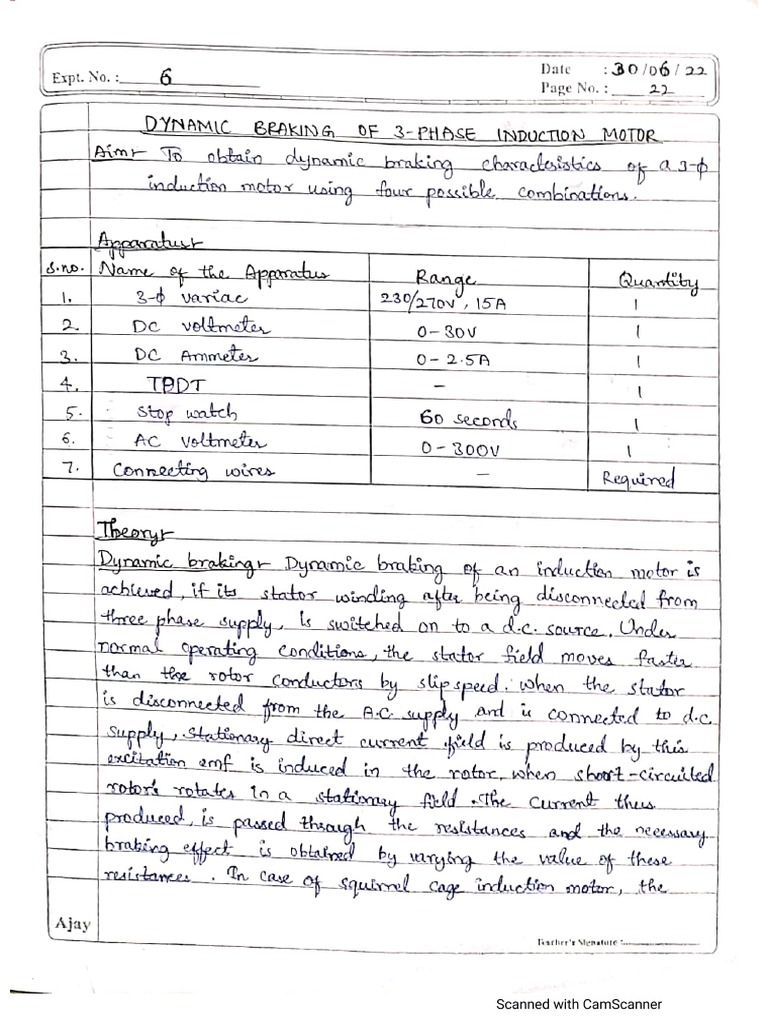 Expt. No. : 6
Date : 30/06/22
Page No. : 22
DYNAMIC BRAKING OF 3-PHASE INDUCTION MOTOR
Aim:- To obtain dynamic braking characteristics of a 3-ϕ
induction motor using four possible combinations.
Apparatus:-
S.no. Name of the Apparatus Range Quantity
1. 3-ϕ variac 230/270V, 15A 1
2. DC voltmeter 0-30V 1
3. DC Ammeter 0-2.5A 1
4. TPDT - 1
5. Stop watch 60 seconds 1
6. AC voltmeter 0-300V 1
7. Connecting wires - Required
Theory:-
Dynamic braking:- Dynamic braking of an induction motor is
achieved, if its stator winding after being disconnected from
three phase supply, is switched on to a d.c. source. Under
normal operating conditions, the stator field moves faster
than the rotor conductors by slip speed. when the stator
is disconnected from the A.C. supply and is connected to d.c.
supply, stationary direct current field is produced by this
excitation emf is induced in the rotor, when short-circuited
rotor's rotates in a stationary field. The current thus
produced, is passed through the resistances and the necessary
braking effect is obtained by varying the value of these
resistances. In case of squirrel cage induction motor, the
Ajay
Teacher's Signature :
Scanned with CamScanner